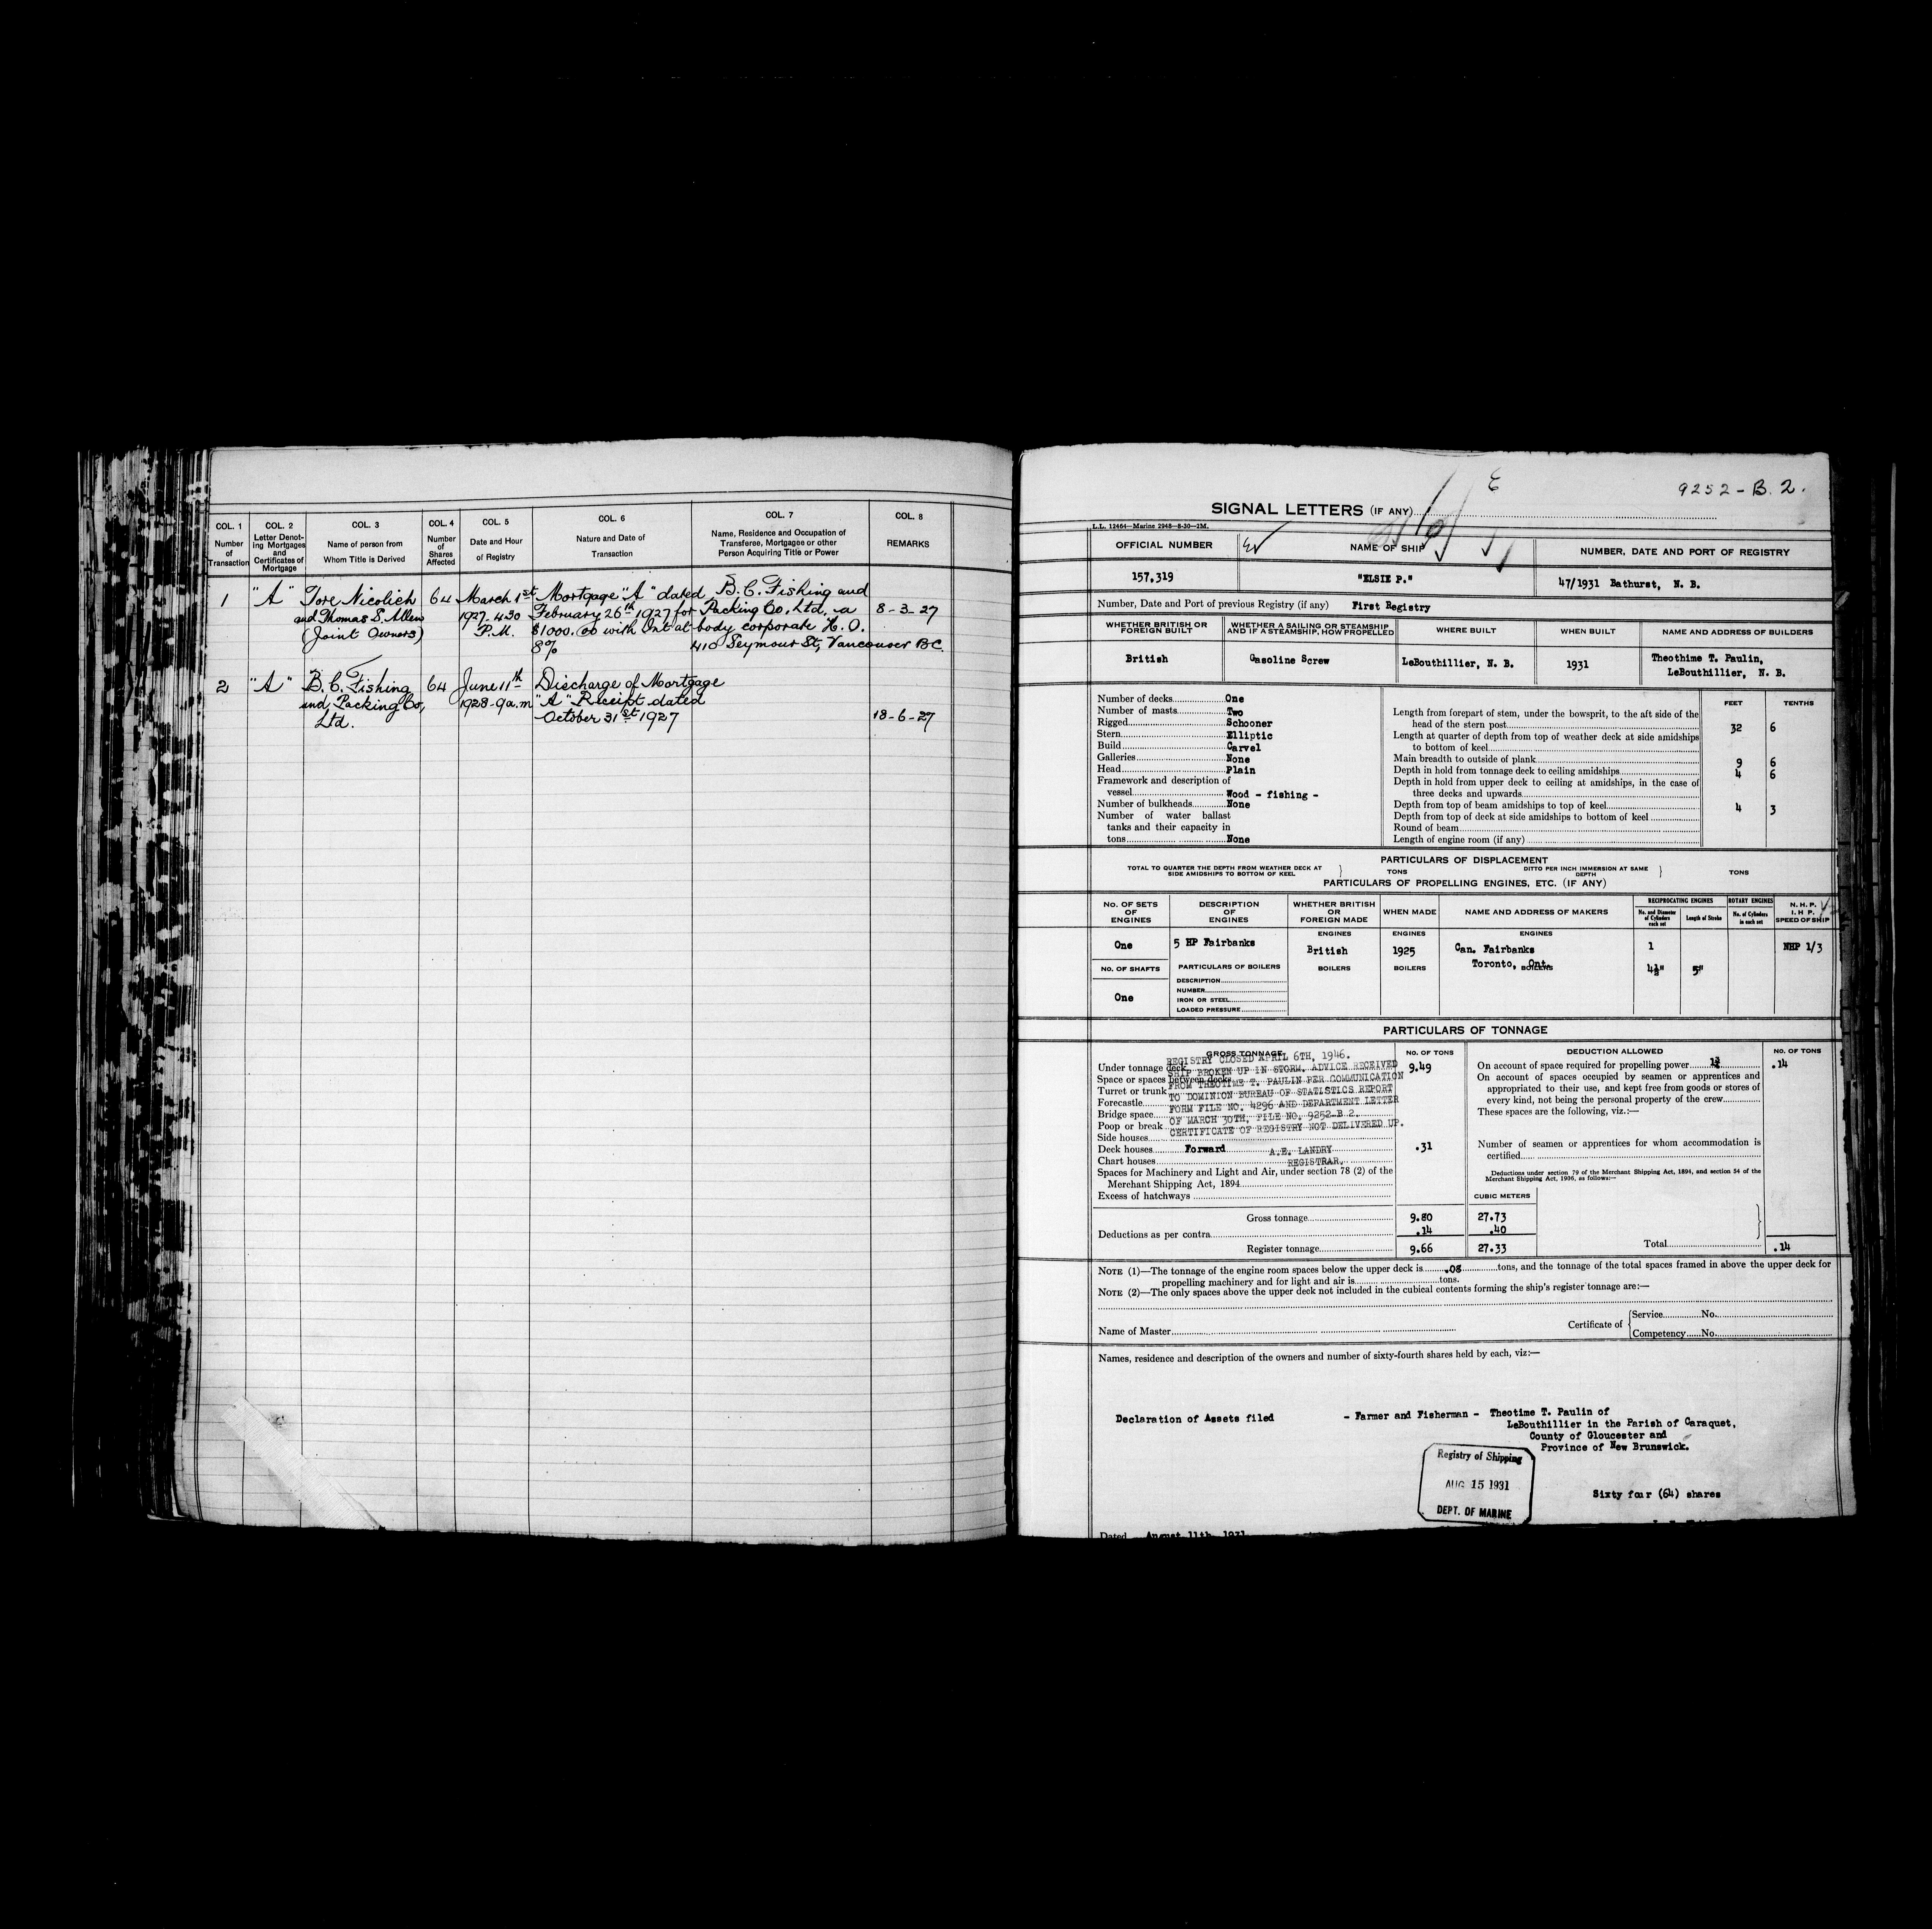 COL. 1
Number
of
Transaction
COL. 2
Letter Denot-
ing Mortgages
and
Certificates of
Mortgage
COL. 3
Name of person from
Whom Title is Derived
COL. 4
Number
of
Shares
Affected
COL. 5
Date and Hour
of Registry
COL. 6
Nature and Date of
Transaction
COL. 7
Name, Residence and Occupation of
Transferee, Mortgagee or other
Person Acquiring Title or Power
COL. 8
REMARKS
1 "A" Tore Nicolich 64 March 1st Mortgage "A" dated B.C. Fishing and
and Thomas S. Allen 1927-4.30 February 26th 1927 for Packing Co. Ltd. a 8-3-27
(Joint Owners) P.M. $1000.00 with Int at body corporate H.O.
8% 410 Seymour St, Vancouver BC.
2 "A" B.C. Fishing 64 June 11th Discharge of Mortgage
and Packing Co, 1928-9a.m "A" Receipt dated
Ltd. October 31st 1927 18-6-27
9252-B.2.
SIGNAL LETTERS (IF ANY)
L.L. 12464—Marine 2948—8-30—2M.
OFFICIAL NUMBER NAME OF SHIP NUMBER, DATE AND PORT OF REGISTRY
157,319 "ELSIE P." 47/1931 Bathurst, N. B.
Number, Date and Port of previous Registry (if any) First Registry
WHETHER BRITISH OR
FOREIGN BUILT
WHETHER A SAILING OR STEAMSHIP
AND IF A STEAMSHIP, HOW PROPELLED
WHERE BUILT WHEN BUILT NAME AND ADDRESS OF BUILDERS
British Gasoline Screw LeBouthillier, N. B. 1931 Theothime T. Paulin,
LeBouthillier, N. B.
Number of decks One
Number of masts Two
Rigged Schooner
Stern Elliptic
Build Carvel
Galleries None
Head Plain
Framework and description of
vessel Wood - fishing -
Number of bulkheads None
Number of water ballast
tanks and their capacity in
tons None
FEET TENTHS
Length from forepart of stem, under the bowsprit, to the aft side of the
head of the stern post 32 6
Length at quarter of depth from top of weather deck at side amidships
to bottom of keel
Main breadth to outside of plank 9 6
Depth in hold from tonnage deck to ceiling amidships 4 6
Depth in hold from upper deck to ceiling at amidships, in the case of
three decks and upwards
Depth from top of beam amidships to top of keel 4 3
Depth from top of deck at side amidships to bottom of keel
Round of beam
Length of engine room (if any)
PARTICULARS OF DISPLACEMENT
TOTAL TO QUARTER THE DEPTH FROM WEATHER DECK AT
SIDE AMIDSHIPS TO BOTTOM OF KEEL } TONS
DITTO PER INCH IMMERSION AT SAME
DEPTH } TONS
PARTICULARS OF PROPELLING ENGINES, ETC. (IF ANY)
NO. OF SETS
OF
ENGINES
DESCRIPTION
OF
ENGINES
WHETHER BRITISH
OR
FOREIGN MADE
WHEN MADE
NAME AND ADDRESS OF MAKERS
RECIPROCATING ENGINES
No. and Diameter
of Cylinders
each set
Length of Stroke
ROTARY ENGINES
No. of Cylinders
in each set
N. H. P.
I. H. P.
SPEED OF SHIP
ENGINES ENGINES ENGINES
One 5 HP Fairbanks British 1925 Can. Fairbanks 1 NHP 1/3
Toronto, Ont. 4½" 5"
NO. OF SHAFTS PARTICULARS OF BOILERS BOILERS BOILERS BOILERS
One
DESCRIPTION
NUMBER
IRON OR STEEL
LOADED PRESSURE
PARTICULARS OF TONNAGE
GROSS TONNAGE NO. OF TONS
Under tonnage deck 9.49
Space or spaces between decks
Turret or trunk
Forecastle
Bridge space
Poop or break
Side houses
Deck houses Forward .31
Chart houses
Spaces for Machinery and Light and Air, under section 78 (2) of the
Merchant Shipping Act, 1894
Excess of hatchways
REGISTRY CLOSED APRIL 6TH, 1946.
SHIP BROKEN UP IN STORM. ADVICE RECEIVED
FROM THEOTIME T. PAULIN PER COMMUNICATION
TO DOMINION BUREAU OF STATISTICS REPORT
FORM FILE NO. 4296 AND DEPARTMENT LETTER
OF MARCH 30TH, FILE NO. 9252 B 2.
CERTIFICATE OF REGISTRY NOT DELIVERED UP.
A.E. LANDRY
REGISTRAR.
CUBIC METERS
Gross tonnage 9.80 27.73
Deductions as per contra .14 .40
Register tonnage 9.66 27.33
DEDUCTION ALLOWED NO. OF TONS
On account of space required for propelling power .14
On account of spaces occupied by seamen or apprentices and
appropriated to their use, and kept free from goods or stores of
every kind, not being the personal property of the crew
These spaces are the following, viz.:—
Number of seamen or apprentices for whom accommodation is
certified
Deductions under section 79 of the Merchant Shipping Act, 1894, and section 54 of the
Merchant Shipping Act, 1906, as follows:—
Total .14
NOTE (1)—The tonnage of the engine room spaces below the upper deck is .08 tons, and the tonnage of the total spaces framed in above the upper deck for
propelling machinery and for light and air is tons.
NOTE (2)—The only spaces above the upper deck not included in the cubical contents forming the ship's register tonnage are:—
Name of Master
Certificate of { Service No.
Competency No.
Names, residence and description of the owners and number of sixty-fourth shares held by each, viz:—
Declaration of Assets filed - Farmer and Fisherman - Theotime T. Paulin of
LeBouthillier in the Parish of Caraquet,
County of Gloucester and
Province of New Brunswick.
Registry of Shipping
AUG 15 1931
DEPT. OF MARINE
Sixty four (64) shares
Dated August 11th, 1931